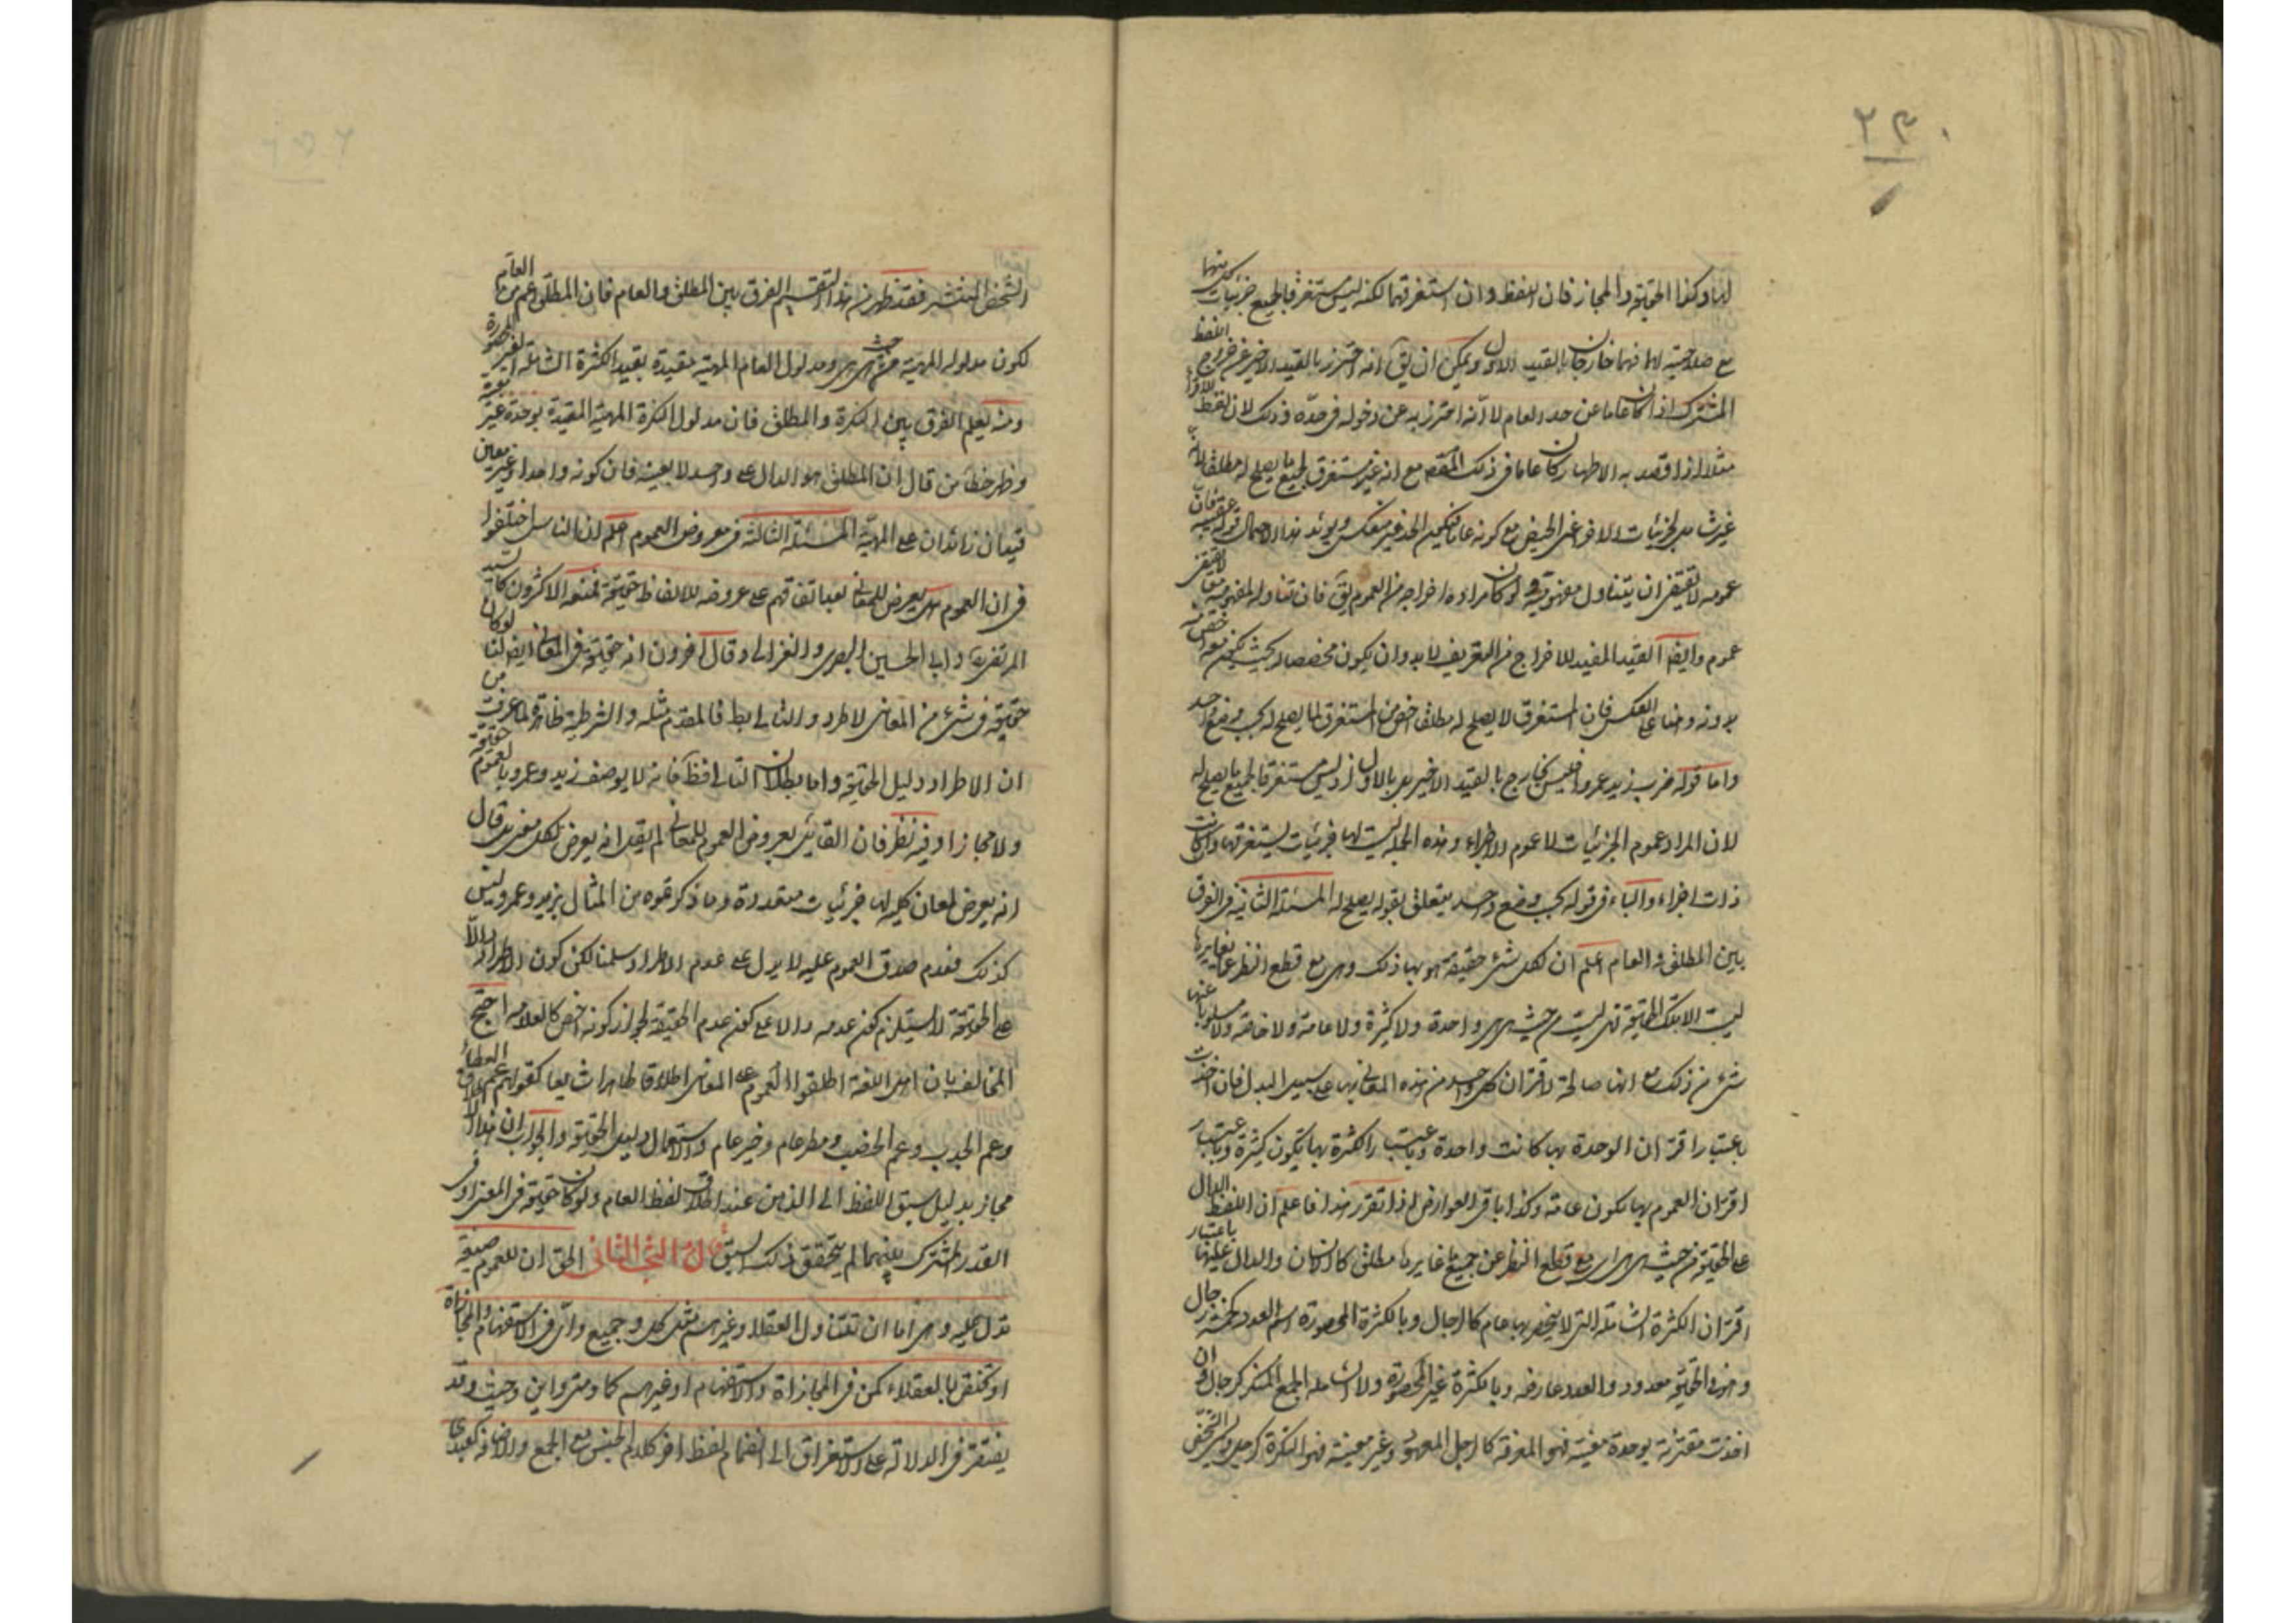 لها وكذا الحقيقة والمجاز فان اللفظ وان استغرقهما لكنه ليس مستغرقا لجميع جزئيات كل منهما
مع صلاحيته لها فهما خارجان بالقيد الاول ويمكن ان يق انه احترز بالقيد الاخير عن خروج اللفظ
المشترك اذا كان عاما عن حد العام لا انه احترز به عن دخوله في حده وذلك لان لفظ القرء
مثلا اذا قصد به الاطهار كان عاما في ذلك القسم مع انه غير مستغرق لجميع ما يصلح له مطلقا لانه
غير شامل لجزئيات الاخر اعنى الحيض مع كونه عاما فيكون الحد غير منعكس ويؤيد هذا الاحتمال قوله عقيبه فان
عمومه لا يقتضى ان يتناول مفهوميه ولو كان مراده اخراجه من العموم لق فان تناوله لمفهوميه معا لا يقتضى
عموم وايضا القيد المفيد للاخراج من التعريف لابد وان يكون مخصصا له بحيث يكون معه اخص منه
بدونه وهنا على العكس فان المستغرق لا يصلح له مطلقا اخص من المستغرق لما يصلح له بحسب وضع واحد
واما قوله ضرب زيد عمروا فليس بخارج بالقيد الاخير بل بالاول اذ ليس مستغرقا لجميع ما يصلح له
لان المراد عموم الجزئيات لا عموم الاجزاء وهذه الجملة ليست لها جزئيات يستغرقها وان كانت
ذات اجزاء والباء في قوله بحسب وضع واحد يتعلق بقوله يصلح له المسئلة الثانية في الفرق
بين المطلق والعام اعلم ان لكل شئ حقيقة هو بها ذلك وهى مع قطع النظر عما يغايرها
ليست الا تلك الحقيقة فهى ليست من حيث هى هى واحدة ولا كثيرة ولا عامة ولا خاصة ولا مسلوبا عنها
شئ من ذلك مع انها صالحة لاقتران كل واحد من هذه المعانى بها على سبيل البدل فان اخذت
باعتبار اقتران الوحدة بها كانت واحدة وباعتبار الكثرة بها تكون كثيرة وباعتبار
اقتران العموم بها تكون عامة وكذا باقى العوارض اذا تقرر هذا فاعلم ان اللفظ الدال
على الحقيقة من حيث هى هى مع قطع النظر عن جميع ما يغايرها مطلق كالانسان والدال عليها باعتبار
اقتران الكثرة الشاملة التى لا ينحصر بها عام كالرجال وبالكثرة المحصورة اسم العدد كخمسة رجال
وهذه الحقيقة معدود والعدد عارضه وبالكثرة غير المحصورة ولا الشاملة الجمع المنكر كرجال وان
اخذت مقترنة بوحدة معينة فهو المعرفة كالرجل المعهود وغير معينة فهو النكرة كرجل وليس الشخص
الشخص المنتشر فقد ظهر من هذا التقسيم الفرق بين المطلق والعام فان المطلق اعم من العام
لكون مدلوله المهية من حيث هى هى ومدلول العام المهية مقيدة بقيد الكثرة الشاملة الغير المحصورة
ومنه يعلم الفرق بين النكرة والمطلق فان مدلول النكرة المهية المقيدة بوحدة غير معينة
وظهر خطا من قال ان المطلق هو الدال على واحد لا بعينه فان كونه واحدا وغير معين
قيدان زائدان على المهية المسئلة الثالثة في معروض العموم اعلم ان الناس اختلفوا
في ان العموم هل يعرض للمعانى بعد اتفاقهم على عروضه للالفاظ حقيقة فمنعه الاكثرون كالسيد
المرتضى وابى الحسين البصرى والغزالى وقال اخرون انه حقيقة في المعانى ايضا لنا لو كان
حقيقة في شئ من المعانى لاطرد والتالى بط فالمقدم مثله والشرطية ظاهرة لما عرفت من
ان الاطراد دليل الحقيقة واما بطلان التالى فظ فانه لا يوصف زيد وعمرو بالعموم حقيقة
ولا مجازا وفيه نظر فان القائل بعروض العموم للمعانى لم يقل انه يعرض لكل معنى بل قال
انه يعرض لمعان كلية لها جزئيات متعددة وما ذكرتموه من المثال بزيد وعمرو ليس
كذلك فعدم صدق العموم عليه لا يدل على عدم الاطراد سلمنا لكن كون الاطراد دالا
على الحقيقة لا يستلزم كون عدمه دالا على كون عدم الحقيقة لجواز كونه اخص كالعلامة احتج
المخالف بان اهل اللغة اطلقوا العموم على المعانى اطلاقا ظاهرا شايعا كقولهم عمهم العطاء
وعم الجدب وعم الخصب ومطر عام وخير عام والاستعمال دليل الحقيقة والجواب ان هذا الاطلاق
مجاز بدليل سبق اللفظ الى الذهن عند اطلاق لفظ العام ولو كان حقيقة في المعنى او في
القدر المشترك بينهما لم يتحقق ذلك السبق قال البحث الثانى الحق ان للعموم صيغة
تدل عليه وهى اما ان تتناول العقلاء وغيرهم مثل كل وجميع واى في الاستفهام والمجازاة
او تختص بالعقلاء كمن في المجازاة والاستفهام او غيرهم كما ومتى واين وحيث وقد
يفتقر في الدلالة على الاستغراق الى انضمام لفظ اخر كلام الجنس مع الجمع والاضافة كعبيدى